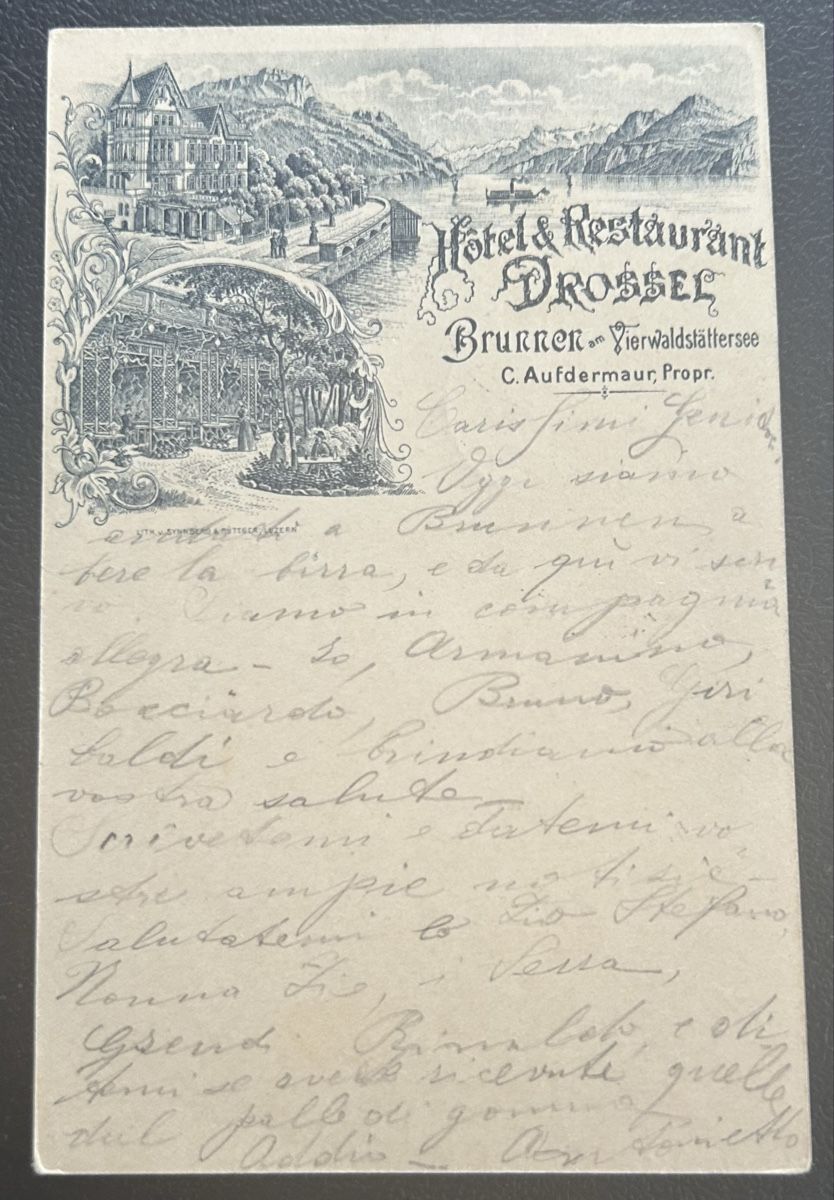 Hôtel & Restaurant
DROSSEL
Brunnen am Vierwaldstättersee
C. Aufdermaur, Propr.
LITH. v. SYNNBERG & RÜTTGER, LUZERN
Carissimi Genitori
Oggi siamo
andati a Brunnen a
bere la birra, e da qui vi scri
vo. Siamo in compagnia
allegra – Io, Armanino,
Bocciardo, Bruno, Giri
baldi e brindiamo alla
vostra salute
Scrivetemi e datemi vo
stre ampie notizie –
Salutatemi lo Zio Stefano,
Nonna Zie, i Serra,
Grendi Rinaldo, e di
temi se avete ricevute quelle
due palle di gomma
Addio – Antonietto